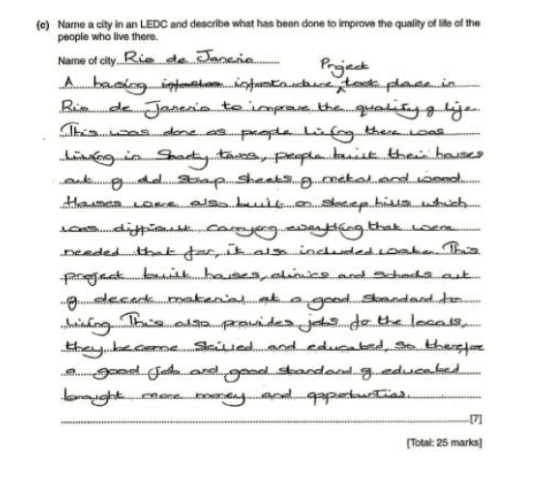 (c) Name a city in an LEDC and describe what has been done to improve the quality of life of the
people who live there.
Name of city Rio de Janerio
Project
A housing infastructure took place in
Rio de Janerio to improve the quality of life.
This was done as people living there was
living in Shanty towns, people built their houses
out of old Scrap sheets of metal and wood.
Houses were also built on steep hills which
was difficult carrying everything that were
needed that far, it also included water. This
project built houses, clinics and schools out
of decent material at a good standard to
living. This also provides jobs to the locals,
they become skilled and educated, so therefor
a good job and good standard of educated
bought more money and oppertunties.
[7]
[Total: 25 marks]